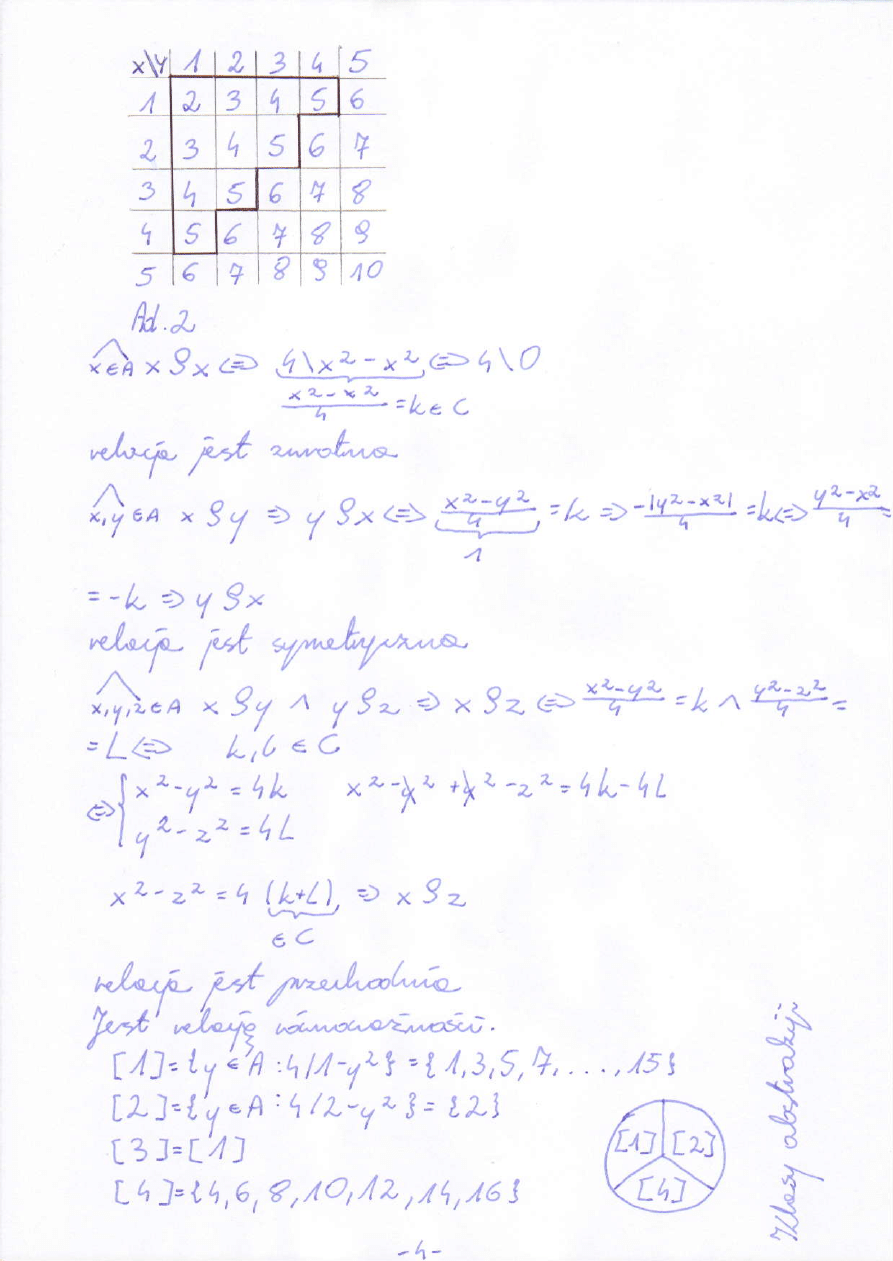 x\y 1 2 3 4 5
1 2 3 4 5 6
2 3 4 5 6 7
3 4 5 6 7 8
4 5 6 7 8 9
5 6 7 8 9 10
Ad. 2
x∈A x ρ x ⇔ 4\x²-x² ⇔ 4\0
x²-x²/4 = k ∈ C
relacja jest zwrotna
x,y ∈ A x ρ y ⇒ y ρ x ⇔ x²-y²/4 = k ⇒ -|y²-x²|/4 = k ⇔ y²-x²/4 =
1
= -k ⇒ y ρ x
relacja jest symetryczna
x,y,z ∈ A x ρ y ∧ y ρ z ⇒ x ρ z ⇔ x²-y²/4 = k ∧ y²-z²/4 =
= L ⇔ k, l ∈ C
⇔ { x²-y² = 4k x²-y²+y²-z² = 4k-4L
y²-z² = 4L
x²-z² = 4 (k+L) ⇒ x ρ z
∈ C
relacja jest przechodnia
Jest relacją równoważności.
[1]={y ∈ A : 4/1-y²} = {1,3,5,7,...,15}
[2]={y ∈ A : 4/2-y²} = {2}
[3]=[1]
[4]={4,6,8,10,12,14,16}
[1] [2]
[4]
Klasy abstrakcji
-4-